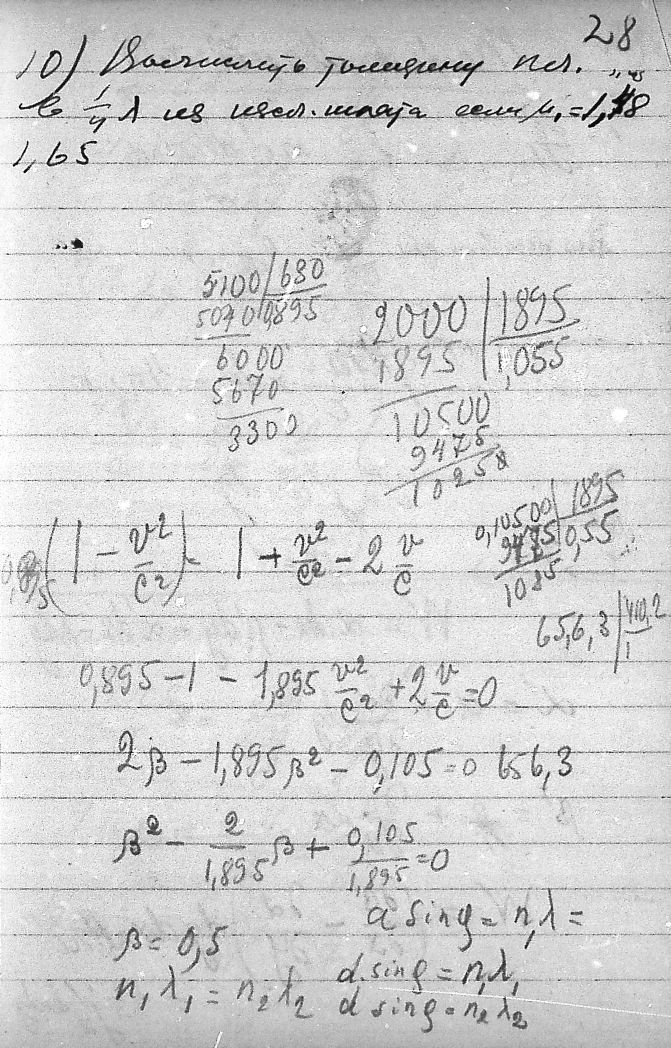 28
10) Вычислить толщину пл.
в 1/4 λ из исл. шпата если μ₁=1,48
1,65
5100 | 630
5070 | 0,895
6000
5670
3300
2000 | 1895
1895 | 1,055
10500
9475
10250
0,10500 | 1895
9475 | 0,55
1025
(1 - v²/c²) - 1 + v²/c² - 2 v/c
656,3 | 410,2
1
0,895 - 1 - 1,895 v²/c² + 2 v/c = 0
2β - 1,895β² - 0,105 = 0 656,3
β² - 2/1,895 β + 0,105/1,895 = 0
a sinφ = n₁λ =
β = 0,5
n₁λ₁ = n₂λ₂
d sinφ = n₁λ₁
d sinφ = n₂λ₂